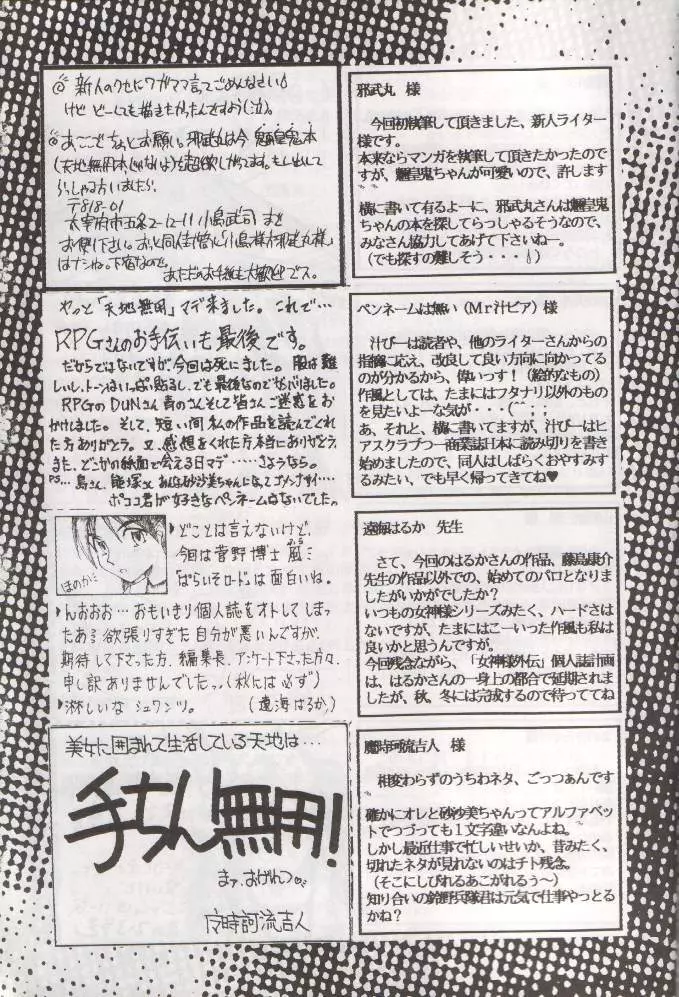 @ 新人のクセにワガママ言ってごめんなさい
けど どーしても描きたかったんですよう(泣)。
@あとここでちょっとお願い。邪武丸は今 魎皇鬼本
(天地無用本じゃないよ)を超欲しがってます。もし出して
らっしゃる方いましたら
〒818-01
お便り下さい。
あただのお手紙も大歓迎デス。
邪武丸 様
今回初執筆して頂きました、新人ライター
様です。
本来ならマンガを執筆して頂きたかったので
すが、魎皇鬼ちゃんが可愛いので、許します
横に書いて有るよーに、邪武丸さんは魎皇鬼
ちゃんの本を探してらっしゃるそうなので、
みなさん協力してあげて下さいねー。
(でも探すの難しそう・・・)
やっと「天地無用」マデ来ました。これで…
RPGさんのお手伝いも最後です。
だからではないですが、今回は死にました。服は難
しいし、トーンはいっぱい貼るし、でも最後なのでがんばりました。
RPGのDUNさん 責のさんそして皆さんご迷惑をお
かけしました。そして、短い間私の作品を読んでくれ
た方ありがとう。又、感想をくれた方本当にありがとう。
また、どこかの紙面で会える日マデ……さようなら。
ポココ君が好きなペンネームはないでした。
ペンネームは無い(Mr汁ピア)様
汁ぴーは読者や、他のライターさんからの
指摘に応え、改良して良い方向に向かってる
のが分かるから、偉いっす!(絵的なもの)
作風としては、たまにはフタナリ以外のもの
を見たいよーな気が・・・(^^;;
あ、それと、横に書いてますが、汁ぴーはヒ
アスクラブつー商業誌日本に読み切りを書き
始めましたので、同人はしばらくおやすみす
るみたい、でも早く帰ってきてね♥
ほのか
どことは言えないけど、
今回は菅野博士風ミ
「ぱらいそロード」は面白いね。
んおおお…おもいきり個人誌をオトしてしまっ
たあ 欲張りすぎた自分が悪いんですが、
期待して下さった方、編集長、アンケート下さった方々、
申し訳ありませんでしたっ。(秋には必ず)
淋しいな シュワンツ。 (遠海はるか)
遠海はるか 先生
さて、今回のはるかさんの作品、藤島康介
先生の作品以外での、始めてのパロとなりま
したがいかがでしたか?
いつもの女神様シリーズみたく、ハードさは
ないですが、たまにはこーいった作風も私は
良いかと思うんですが。
今回残念ながら、「女神様外伝」個人誌計画
は、はるかさんの一身上の都合で延期されま
したが、秋、冬には完成するので待っててね
美女に囲まれて生活している天地は…
手ちん無用!
まァ、おげんつ
魔時珂流吉人
魔時珂流吉人 様
相変わらずのうちわネタ、ごっつぁんです
確かにオレと砂沙美ちゃんってアルファベッ
トでつづっても1文字違いなんよね。
しかし最近仕事で忙しいせいか、昔みたく、
切れたネタが見れないのはチト残念。
(そこにしびれるあこがれるう〜)
知り合いの鈴野兵隊君は元気で仕事やっとる
かね?